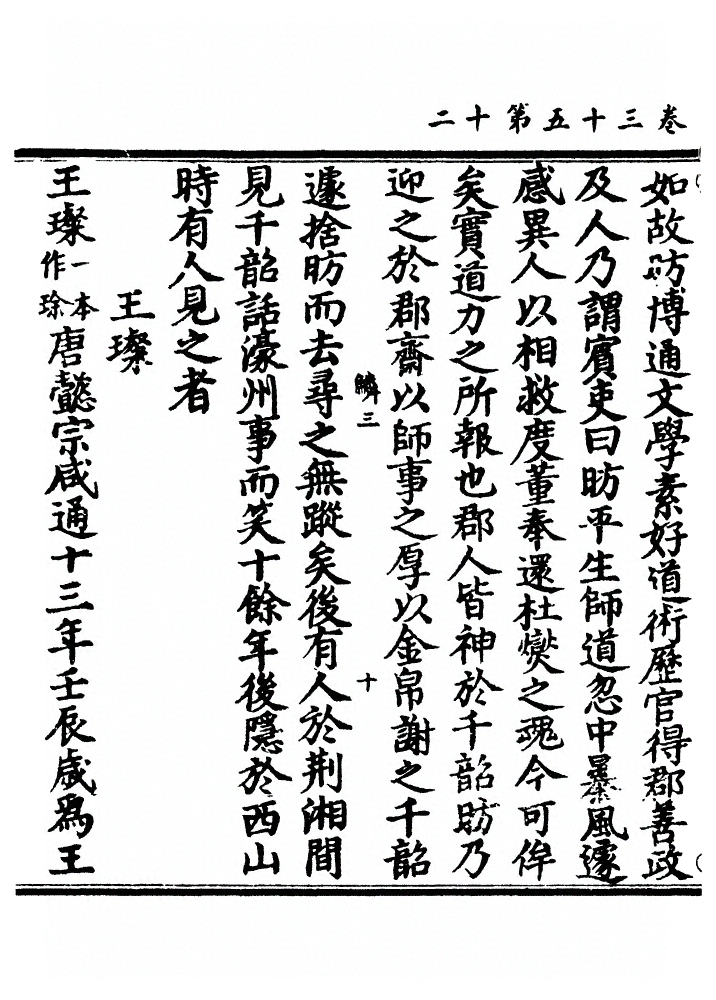 卷三十五第十二
如故昉博通文學素好道術歷官得郡善政
及人乃謂賓吏曰昉平生師道忽中暴風遽
感異人以相救度董奉還杜燮之魂今可侔
矣實道力之所報也郡人皆神於千韶昉乃
迎之於郡齋以師事之厚以金帛謝之千韶
鱗三
十
遽捨昉而去尋之無蹤矣後有人於荆湘間
見千韶話濠州事而笑十餘年後隱於西山
時有人見之者
王璨
王璨一本作琭唐懿宗咸通十三年壬辰歲爲王